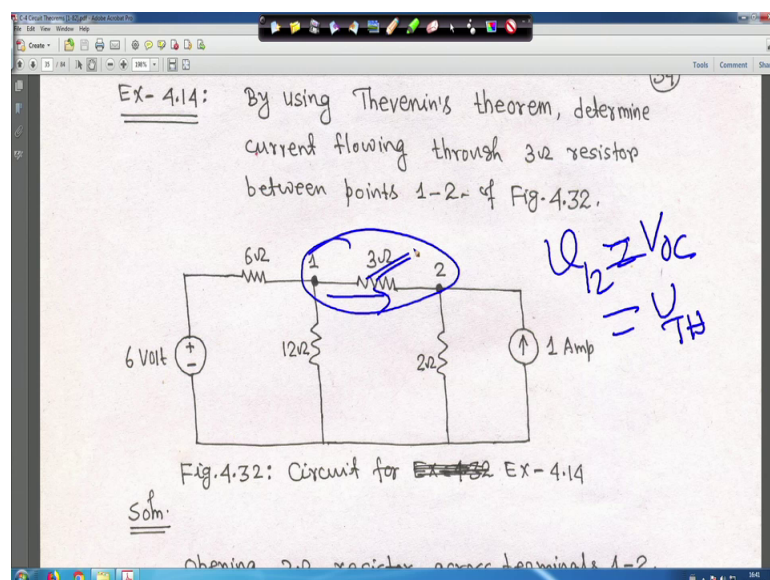 C-4 Circuit Theorems [1-82].pdf - Adobe Acrobat Pro
File Edit View Window Help
Create
35 / 84
198%
Tools Comment
34
Ex- 4.14: By using Thevenin's theorem, determine
current flowing through 3Ω resistor
between points 1-2- of Fig.4.32.
6Ω 1 3Ω 2
6 Volt
12Ω
2Ω
1 Amp
V12 = VOC
= VTH
Fig.4.32: Circuit for Ex-4.14
Soln.
opening 3Ω resistor across terminals 1-2.
16:41